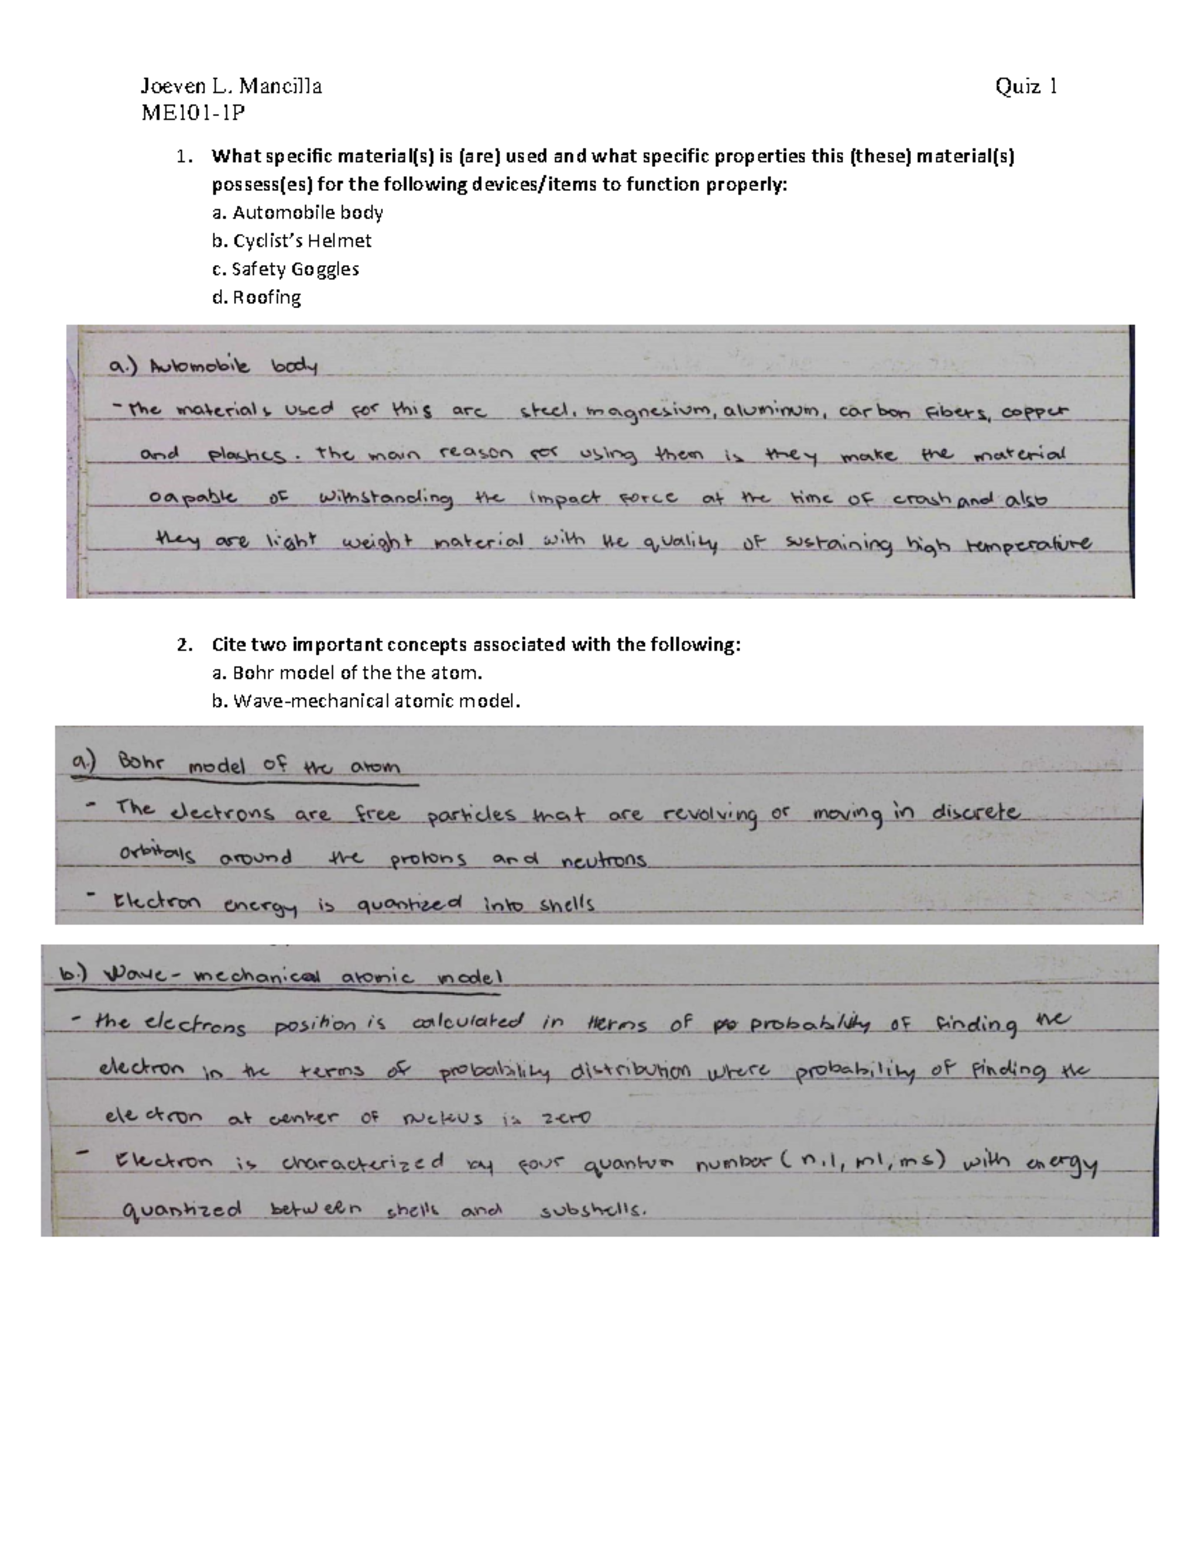 Joeven L. Mancilla Quiz 1
ME101-1P
1. What specific material(s) is (are) used and what specific properties this (these) material(s)
possess(es) for the following devices/items to function properly:
a. Automobile body
b. Cyclist's Helmet
c. Safety Goggles
d. Roofing
a.) Automobile body
- The materials used for this are steel, magnesium, aluminum, carbon fibers, copper
and plastics. The main reason for using them is they make the material
capable of withstanding the impact force at the time of crash and also
they are light weight material with the quality of sustaining high temperature
2. Cite two important concepts associated with the following:
a. Bohr model of the the atom.
b. Wave-mechanical atomic model.
a.) Bohr model of the atom
- The electrons are free particles that are revolving or moving in discrete
orbitals around the protons and neutrons
- Electron energy is quantized into shells
b.) Wave-mechanical atomic model
- the electrons position is calculated in terms of probability of finding the
electron in the terms of probability distribution where probability of finding the
electron at center of nucleus is zero
- Electron is characterized by four quantum number (n,l, ml, ms) with energy
quantized between shells and subshells.